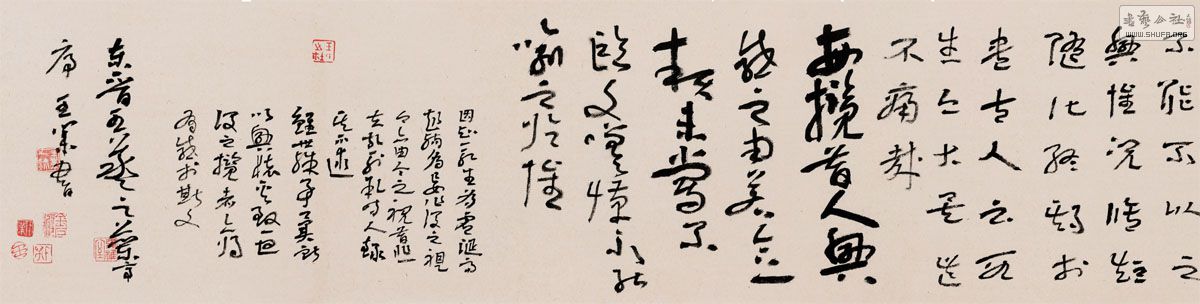 書藝公社
WWW.SHUFA.ORG
不能不以之
興懷況脩短
隨化終期於
盡古人云死
生亦大矣豈
不痛哉
每攬昔人興
感之由若合一
契未嘗不
臨文嗟悼不能
喻之於懷
固知一死生為虛誕齊
彭殤為妄作後之視
今亦由今之視昔悲
夫故列敘時人錄
其所述
雖世殊事異所
以興懷其致一也
後之攬者亦將
有感於斯文
东晋王羲之蘭亭
序 王書